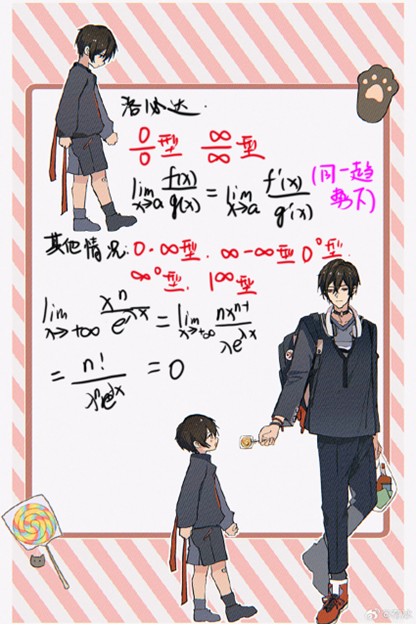 洛必达.
0/0型 ∞/∞型
lim x→a f(x)/g(x) = lim x→a f'(x)/g'(x) (同一趋势下)
其他情况: 0·∞型. ∞-∞型 0⁰型.
∞⁰型. 1^∞型
lim x→+∞ xⁿ/e^λx = lim x→+∞ nxⁿ⁻¹/λe^λx
= n!/λⁿe^λx = 0